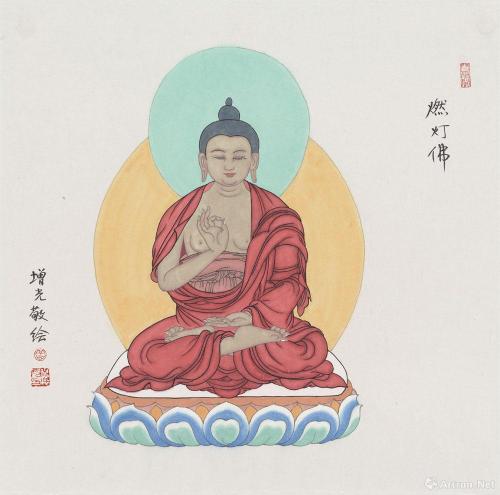 燃灯佛
增光敬绘
Artron.Net